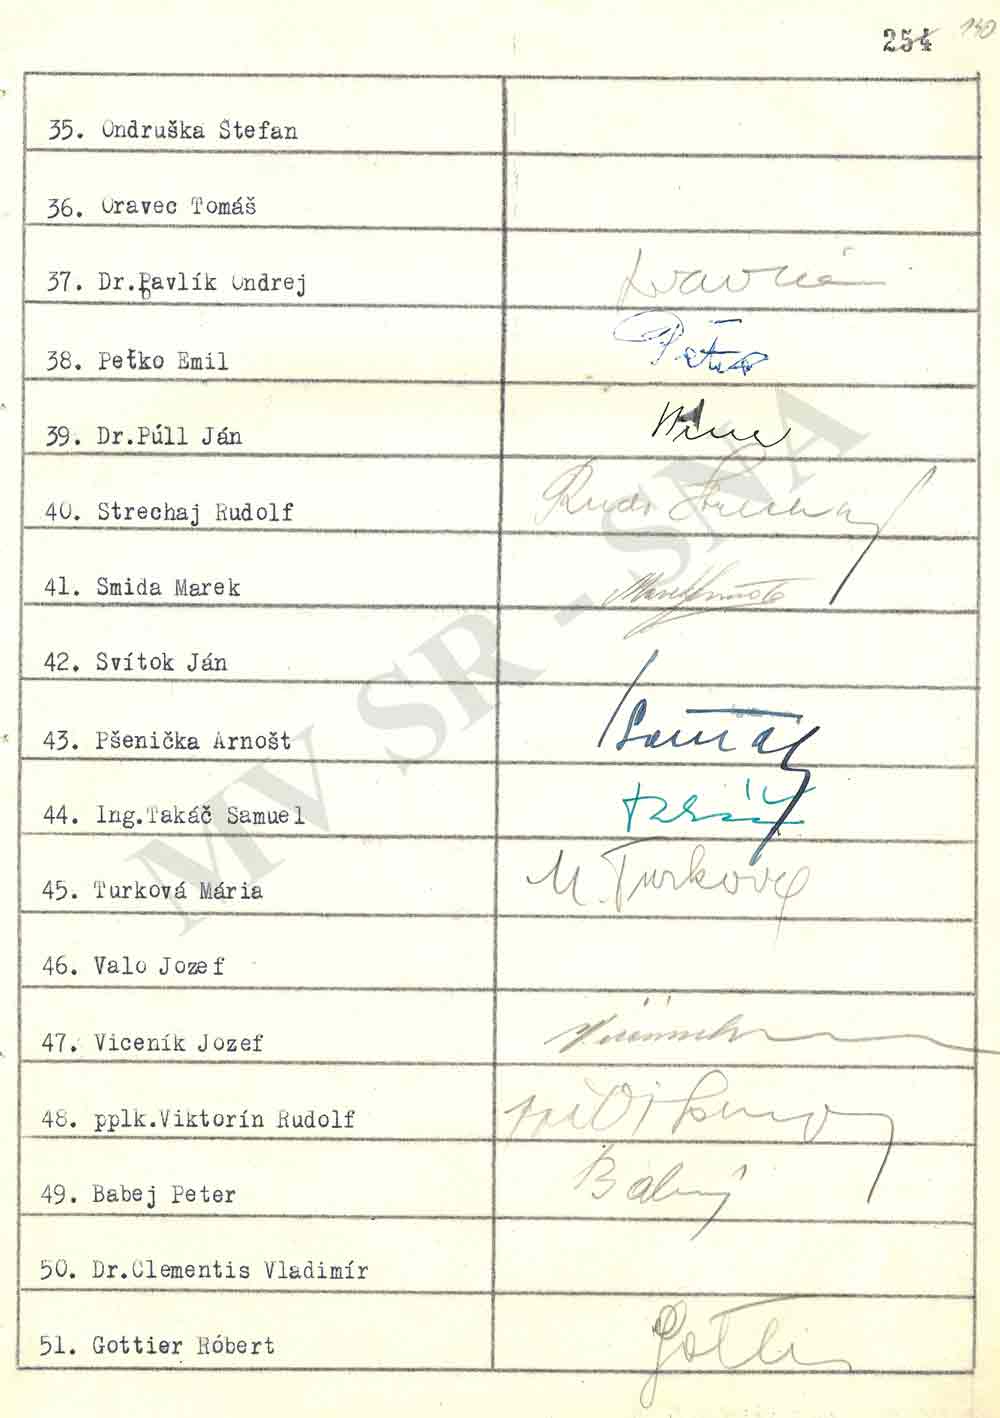 254 140
35. Ondruška Štefan
36. Oravec Tomáš
37. Dr.Pavlík Ondrej
38. Peťko Emil
39. Dr.Púll Ján
40. Strechaj Rudolf
41. Smida Marek
42. Svítok Ján
43. Pšenička Arnošt
44. Ing.Takáč Samuel
45. Turková Mária M. Turková
46. Valo Jozef
47. Viceník Jozef
48. pplk.Viktorín Rudolf
49. Babej Peter
50. Dr.Clementis Vladimír
51. Gottier Róbert
MV SR - SNA